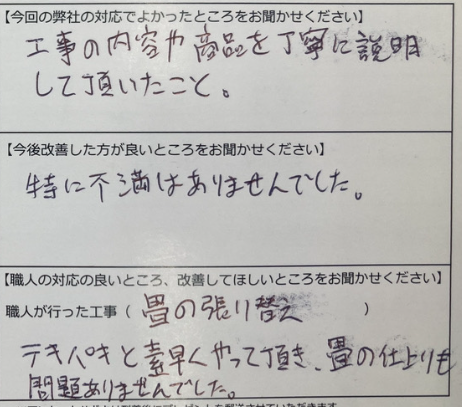 【今回の弊社の対応でよかったところをお聞かせください】
工事の内容や商品を丁寧に説明
して頂いたこと。
【今後改善した方が良いところをお聞かせください】
特に不満はありませんでした。
【職人の対応の良いところ、改善してほしいところをお聞かせください】
職人が行った工事（ 畳の張り替え ）
テキパキと素早くやって頂き、畳の仕上りも
問題ありませんでした。